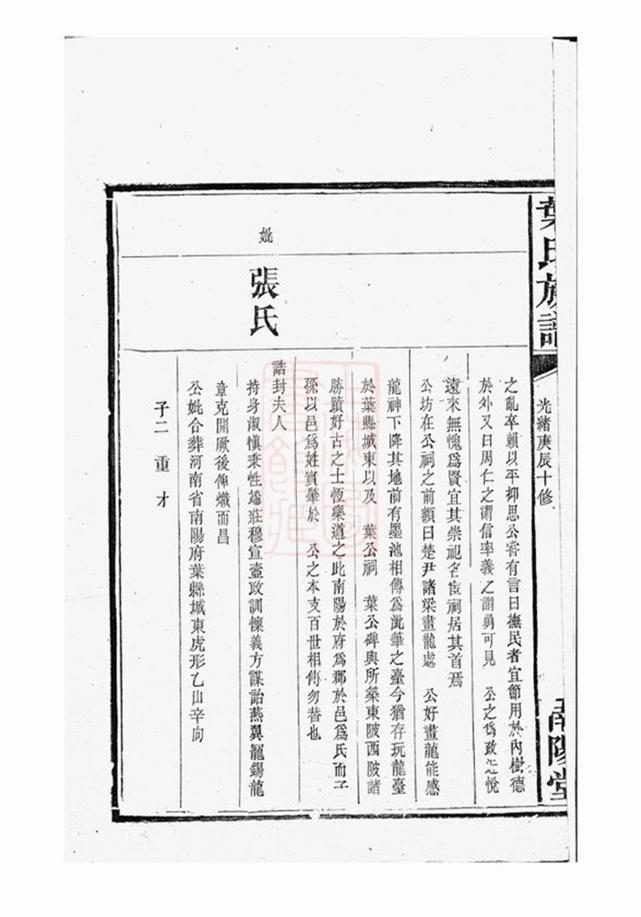 葉氏族譜
光緒庚辰十修
南陽堂
之亂卒賴以平抑思公嘗有言曰撫民者宜節用於內樹德
於外又曰周仁之謂信率義之謂勇可見 公之爲政近悅
遠來無愧爲賢宜其崇祀名宦祠居其首焉
公坊在公祠之前額曰楚尹諸梁畫龍處 公好畫龍能感
龍神下降其地前有墨池相傳爲泚筆之臺今猶存玩龍臺
於葉縣城東以及 葉公祠 葉公碑與所築東陂西陂諸
勝蹟好古之士恆樂道之此南陽於府爲郡於邑爲氏而子
孫以邑爲姓實肇於 公之本支百世相傳勿替也
妣
張氏
誥封夫人
持身淑慎秉性端莊穆宣壼政訓懷義方謀詒燕翼寵錫龍
章克開厥後俾熾而昌
公妣合葬河南省南陽府葉縣城東虎形乙山辛向
子二 重 才